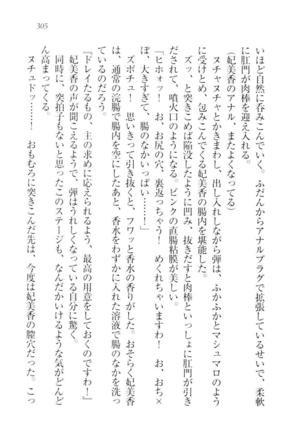 305
いほど自然に呑みこんでいく。ふだんからアナルプラグで拡張しているせいで、柔軟
に肛門が肉棒を迎え入れる。
(妃美香のアナル、またよくなってる)
ヌチャヌチャとかきまわし、出し入れしながら弾は、ふかふかとマシュマロのよう
に受けとめ、包みこんでくる妃美香の腸内を堪能した。
ズッ、と突きこめば陥没したように凹み、抜きだすと肉棒といっしょに肛門が引き
だされて、噴火口のようになる。ピンクの直腸粘膜が美しい。
「ヒホォッ! お、お尻の穴、裏返っちゃう! めくれちゃいますわ! お、おち×
ぽ、大きすぎて、腸のなかいっぱい……!」
ズボチュ! って引き抜くと、フワッと香水の香りがした。おそらく妃美香
は、通常の浣腸で腸内を空にしたあと、香水をわずかに入れた溶液で腸のなかを洗っ
ているのだろう。
『ドレイたるもの、主の求めに応えられるよう、最高の用意をしておくのですわ!』
妃美香の声が聞こえるようで、弾はうれしい。引きずられて、たかぶる。
同時に、突拍子もないと思ったこのステージも、なんだかいけるような気がどんど
ん高まってくる。そういう自分に驚く。
ヌチュドッ……! おもむろに突きこんだ先は、今度は妃美香の膣穴だった。こっ